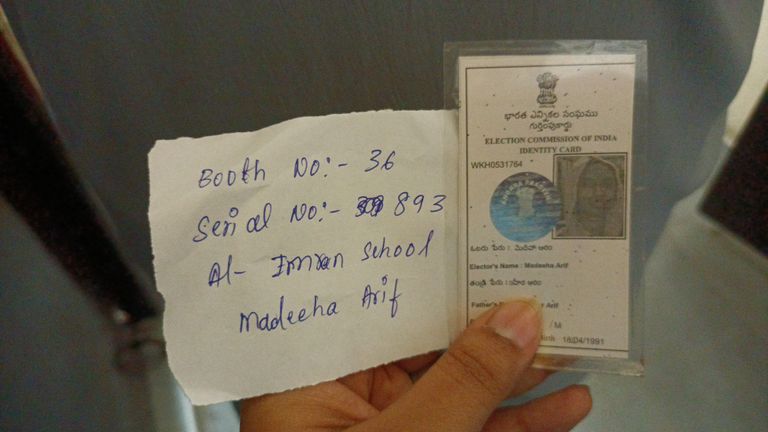 Booth No:- 36
Serial No:- 893
Al- Imran School
Madeeha Arif
భారత ఎన్నికల సంఘము
గుర్తింపుకార్డు
ELECTION COMMISSION OF INDIA
IDENTITY CARD
WKH0531764
ఓటరు పేరు :
Elector's Name : Madeeha Arif
తండ్రి పేరు :
Father's Arif
/ M
18/04/1991